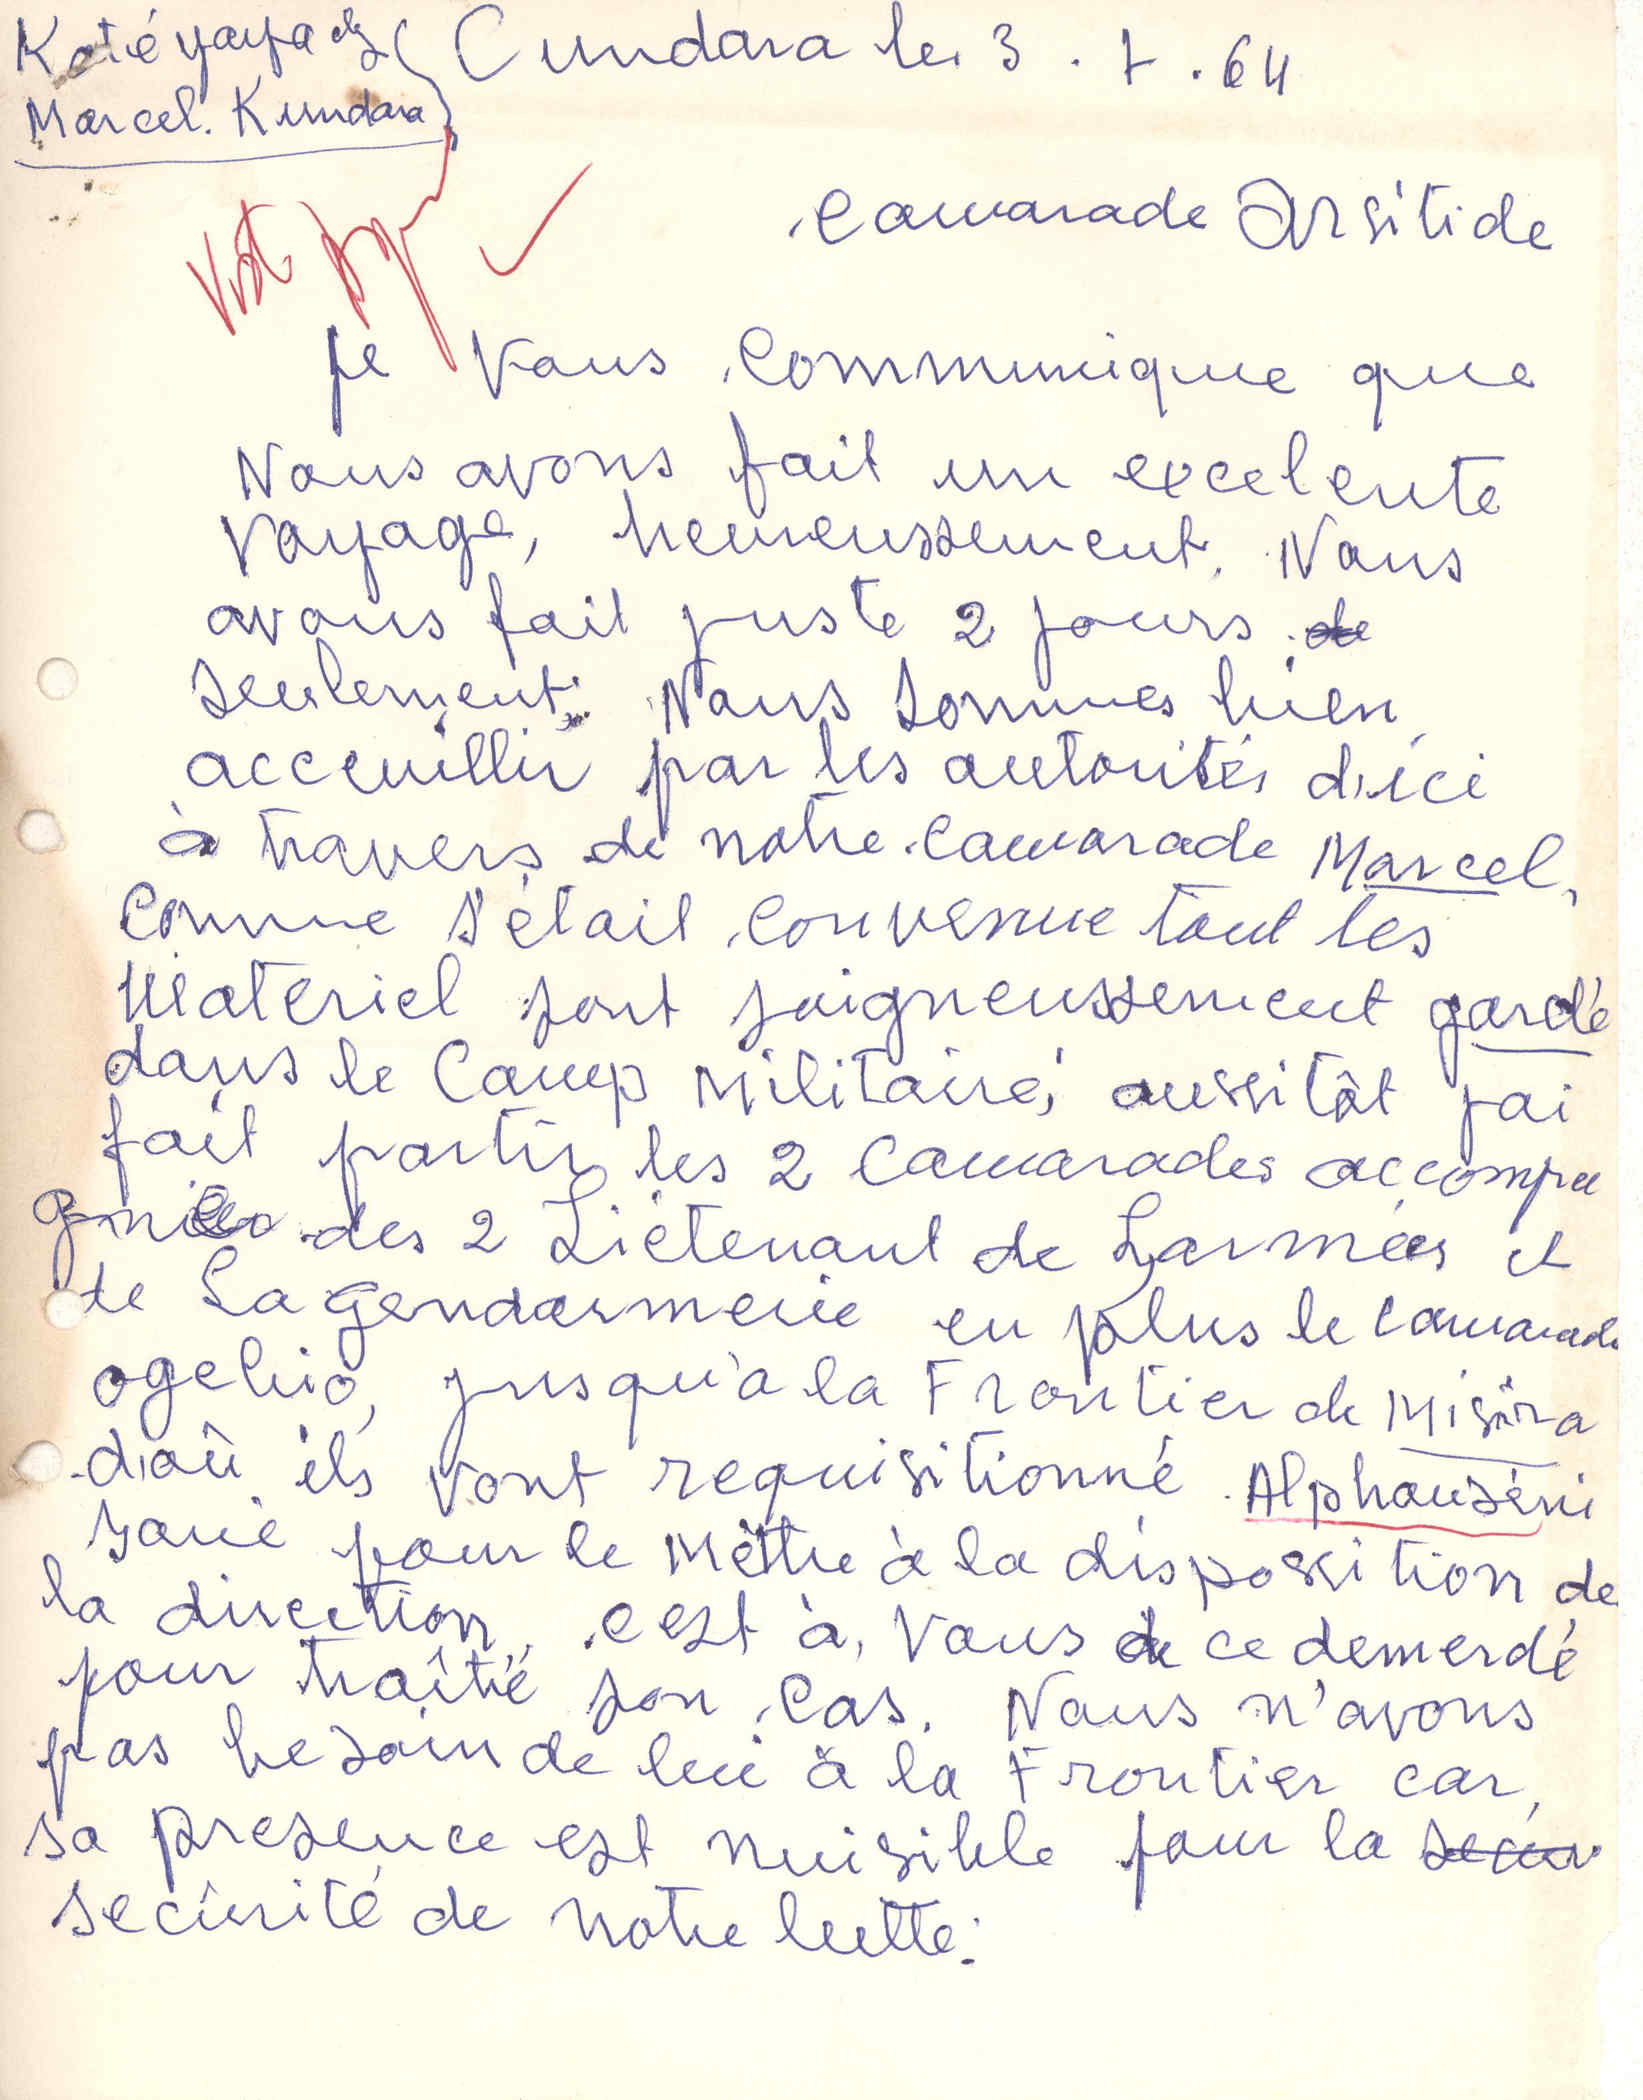 Koté yaya et
Marcel. Kundara
Cundara le. 3. 7. 64
Camarade Arsitide
je Vous Communique que
Nous avons fait un excelente
Voyage, heureussement. Nous
avons fait juste 2 jours de
seulement. Nous sommes bien
acceuillir par les autorités d'ici
à travers de notre Camarade Marcel,
Comme s'était convenue tout les
Materiel sont soigneussement gardé
dans le Camp Militaire, aussitôt j'ai
fait partir les 2 Camarades accompa
gniés des 2 Liétenant de Larmées et
de La gendarmerie en plus le camarade
ogebio, jusqu'a la Frontier de Misira
d'où ils vont requisitionné Alphouséni
Sané pour le Mettre à la dispossition de
la direction, c est à Vous de ce demerdé
pour traîtté son cas. Nous n'avons
pas besoin de lui à la Frontier car,
sa presence est nuisible pour la secur
securité de notre lutte.